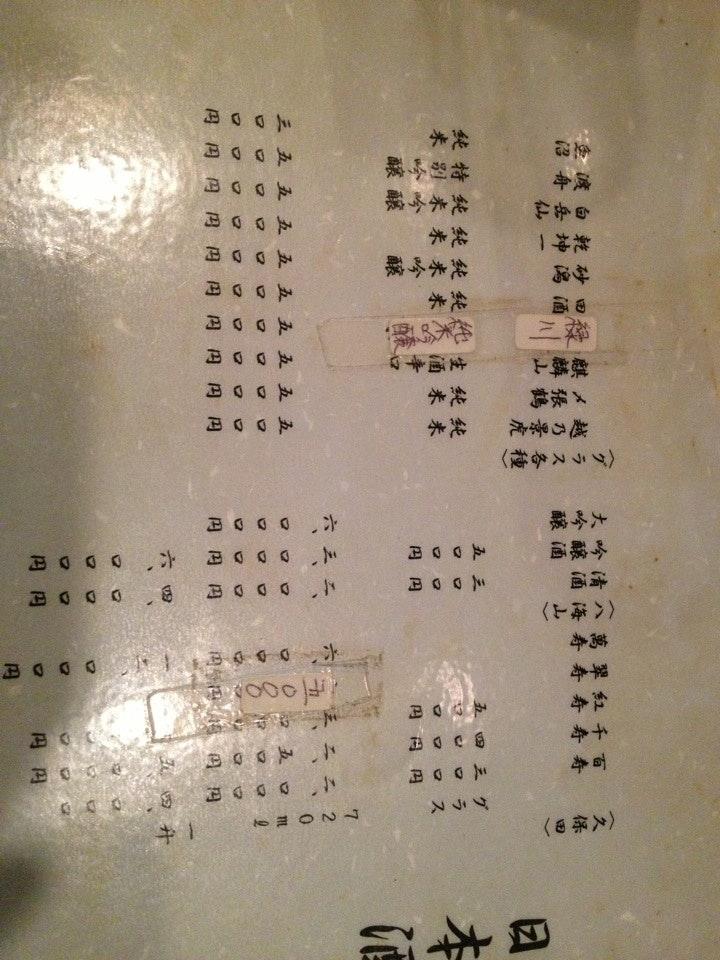 日本酒
〈久保田〉 グラス 720ml 一升
百寿 三〇〇円 二、〇〇〇円 四、〇〇〇
千寿 四〇〇円 二、五〇〇円 五、
紅寿 五〇〇円 三、
翠寿 五000
萬寿 六、〇〇〇円 一二、〇〇〇円
〈八海山〉
清酒 三〇〇円 二、〇〇〇円 四、〇〇〇円
吟醸酒 五〇〇円 三、〇〇〇円 六、〇〇〇円
大吟醸 六、〇〇〇円
〈グラス各種〉
越乃景虎 純米 五〇〇円
〆張鶴 純米 五〇〇円
麒麟山 生酒辛口 五〇〇円
禄川 純米吟醸 五〇〇円
田酒 純米 五〇〇円
砂潟 純米吟醸 五〇〇円
乾坤一 純米 五〇〇円
白岳仙 純米吟醸 五〇〇円
渡舟 特別吟醸 五〇〇円
魚沼 純米 三〇〇円